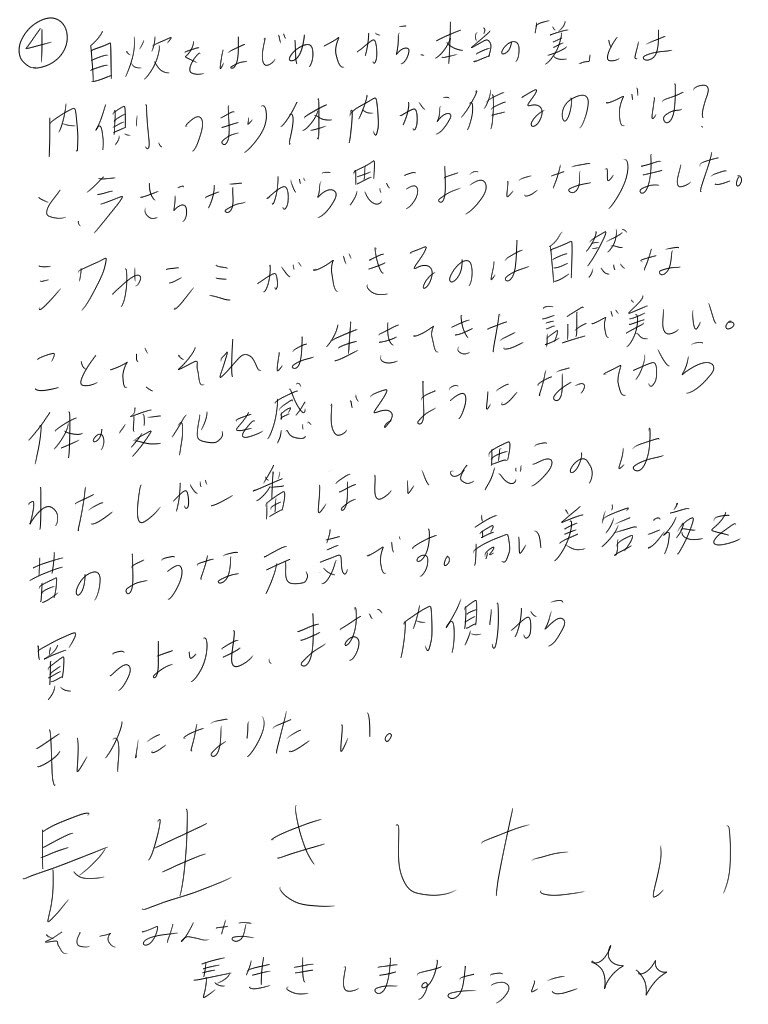 ④ 自炊をはじめてから、本当の「美」とは
内側、つまり体内から作るのでは?
と、今さらながら思うようになりました。
シワやシミができるのは自然な
ことで、それは生きてきた証で美しい。
体の変化を感じるようになってから
わたしが一番ほしいと思うのは
昔のような元気です。高い美容液を
買うよりも、まず内側から
キレイになりたい。
長生きしたい
そしてみんな
長生きしますように✧✧